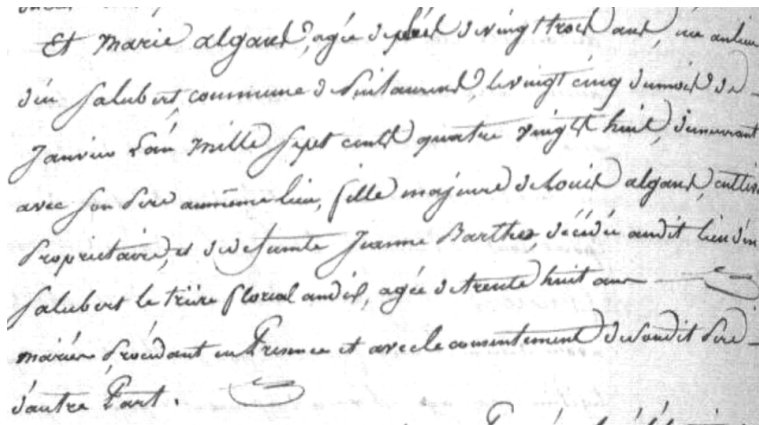 Et marie algans, agée de plus de vingt trois ans, née au lieu
d'en Salubert, commune de Puilaurens, le vingt cinq du mois de
Janvier l'an mille sept cents quatre vingt huit, demeurant
avec son Père au même lieu, fille majeure de Louis algans, cultiv
Propriétaire, et de defunte Jeanne Barthes, décédée audit lieu d'en
Salubert le trèize floréal an dix, agée de trente huit ans
mariée Procédant en Présence et avec le consentement de son dit Père
d'autre Part.